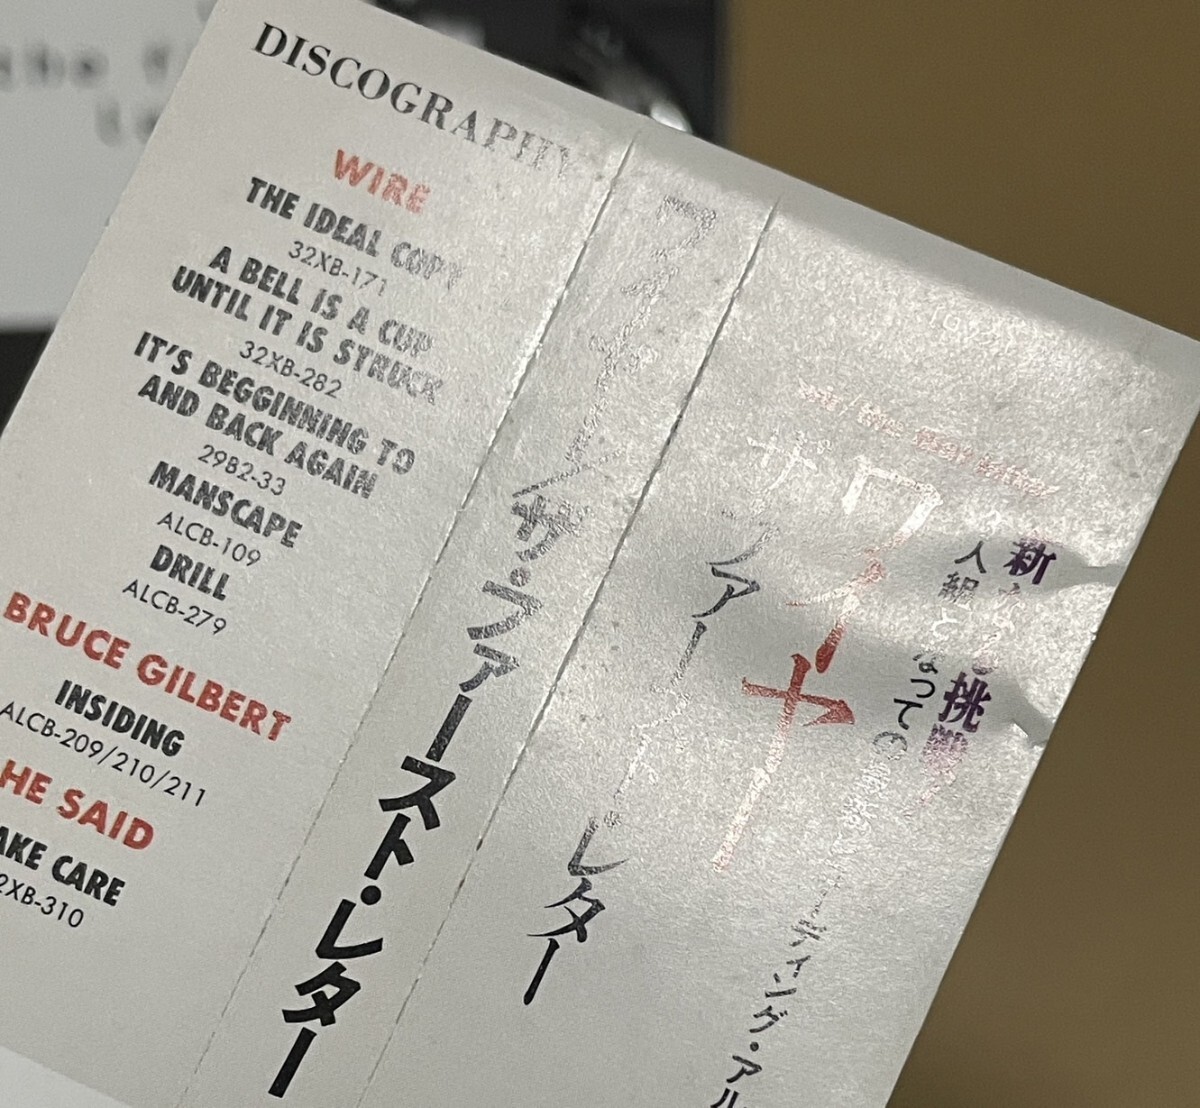 DISCOGRAPHY
WIRE
THE IDEAL COPY
32XB-171
A BELL IS A CUP
UNTIL IT IS STRUCK
32XB-282
IT'S BEGGINNING TO
AND BACK AGAIN
29B2-33
MANSCAPE
ALCB-109
DRILL
ALCB-279
BRUCE GILBERT
INSIDING
ALCB-209/210/211
HE SAID
AKE CARE
2XB-310
ワイヤー/ザ・ファースト・レター
wir/the first letter
ワイヤー
ザ・ファースト・レター
新たなる挑戦
人組となっての
ーディング・アル
the f
le